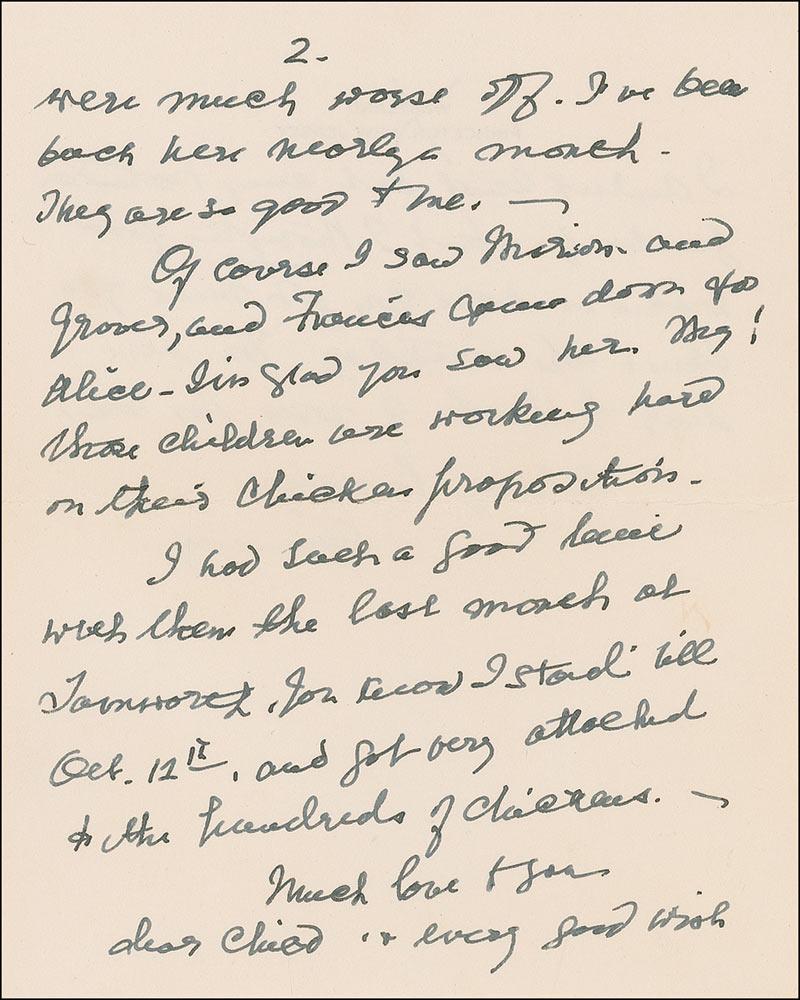 2.
were much worse off. I've been
back here nearly a month -
They are so good to me. —
Of course I saw Marion and
Grover, and Frances came down to
Alice - I'm glad you saw her. My!
those children are working hard
on their Chicken proposition -
I had such a good time
with them the last month at
Tamworth, you know I staid till
Oct. 12th, and got very attached
to the hundreds of chickens. —
Much love to you
dear Child & every good wish